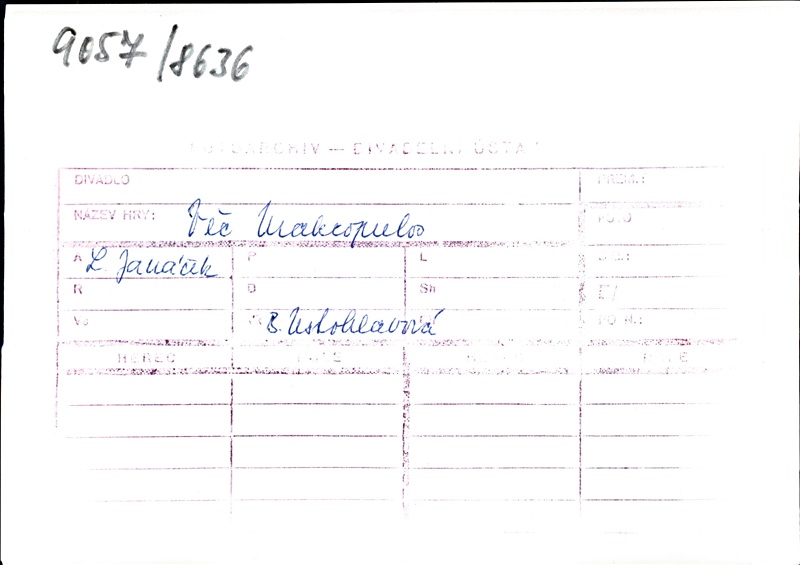 9057/8636
FOTOARCHIV — DIVADELNÍ ÚSTAV
DIVADLO PREM.:
NÁZEV HRY: Věc Makropulos
A L. Janáček P L
R D Sn
B. Ustohlavová
HEREC ROLE ROLE